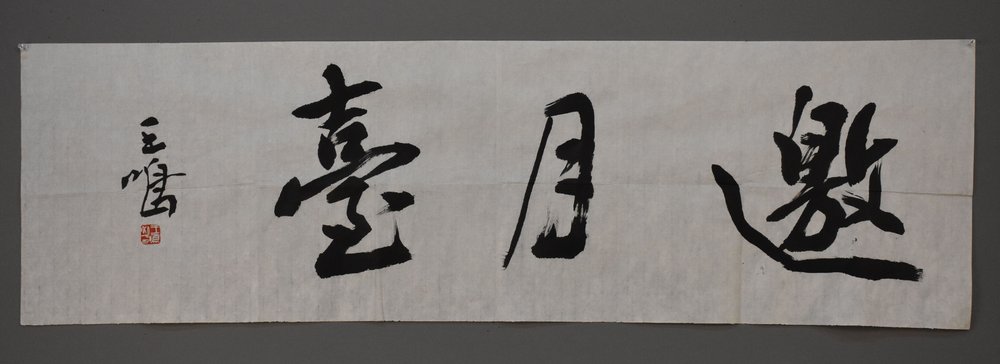 邀月臺
王鳴